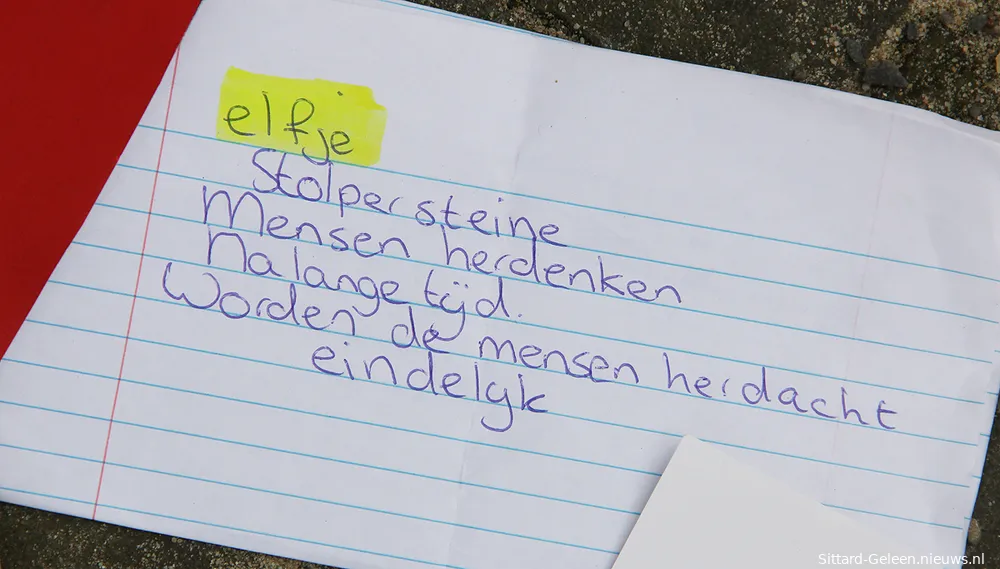 elfje
Stolpersteine
Mensen herdenken
Na lange tijd.
Worden de mensen herdacht
eindelyk
Sittard-Geleen.nieuws.nl